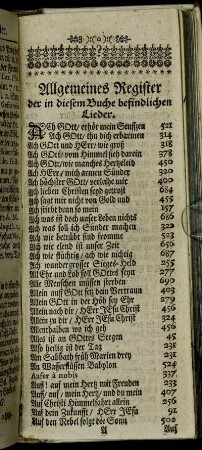 Allgemeines Register
der in diesem Buche befindlichen
Lieder.
ACh GOtt, erhör mein Seuffzen 521
Ach GOtt, thu dich erbarmen 314
Ach GOtt und HErr, wie groß 318
Ach GOtt, vom Himmel sieh darein 378
Ach GOtt, wie manches Hertzeleid 450
Ach HErr, mich armen Sünder 320
Ach höchster GOtt, verleihe mir 400
Ach lieben Christen seyd getrost 684
Ach sagt mir nicht von Gold und 455
Ach stirbt denn so mein
Ach was ist doch unser Leben nichts
Ach was soll ich Sünder machen 322
Ach wie betrübt sind fromme 523
Ach wie elend ist unser Zeit
Ach wie flüchtig, ach wie nichtig 687
Ach wundergrosser Sieges-Held 255
All Ehr und Lob soll GOttes seyn
Alle Menschen müssen sterben 690
Allein auf GOtt setz dein Vertraun
Allein GOtt in der Höh sey Ehr
Allein nach dir, HErr JEsu Christ 456
Allein zu dir, HErr JEsu Christ 324
Allenthalben wo ich geh
Alles ist an GOttes Seegen 45
Also heilig ist der Tag 231
Am Sabbath früh Marien drey 231
An Wasserflüssen Babylon 524
Aufer à nobis 337
Auf! auf! mein Hertz mit Freuden 233
Auf, auf, mein Hertz, und du mein
Auf Christi Himmelfahrt allein
Auf dein Zukunfft, HErr JEsu 91
Auf den Nebel folgt die Sonn 502
A
Auf